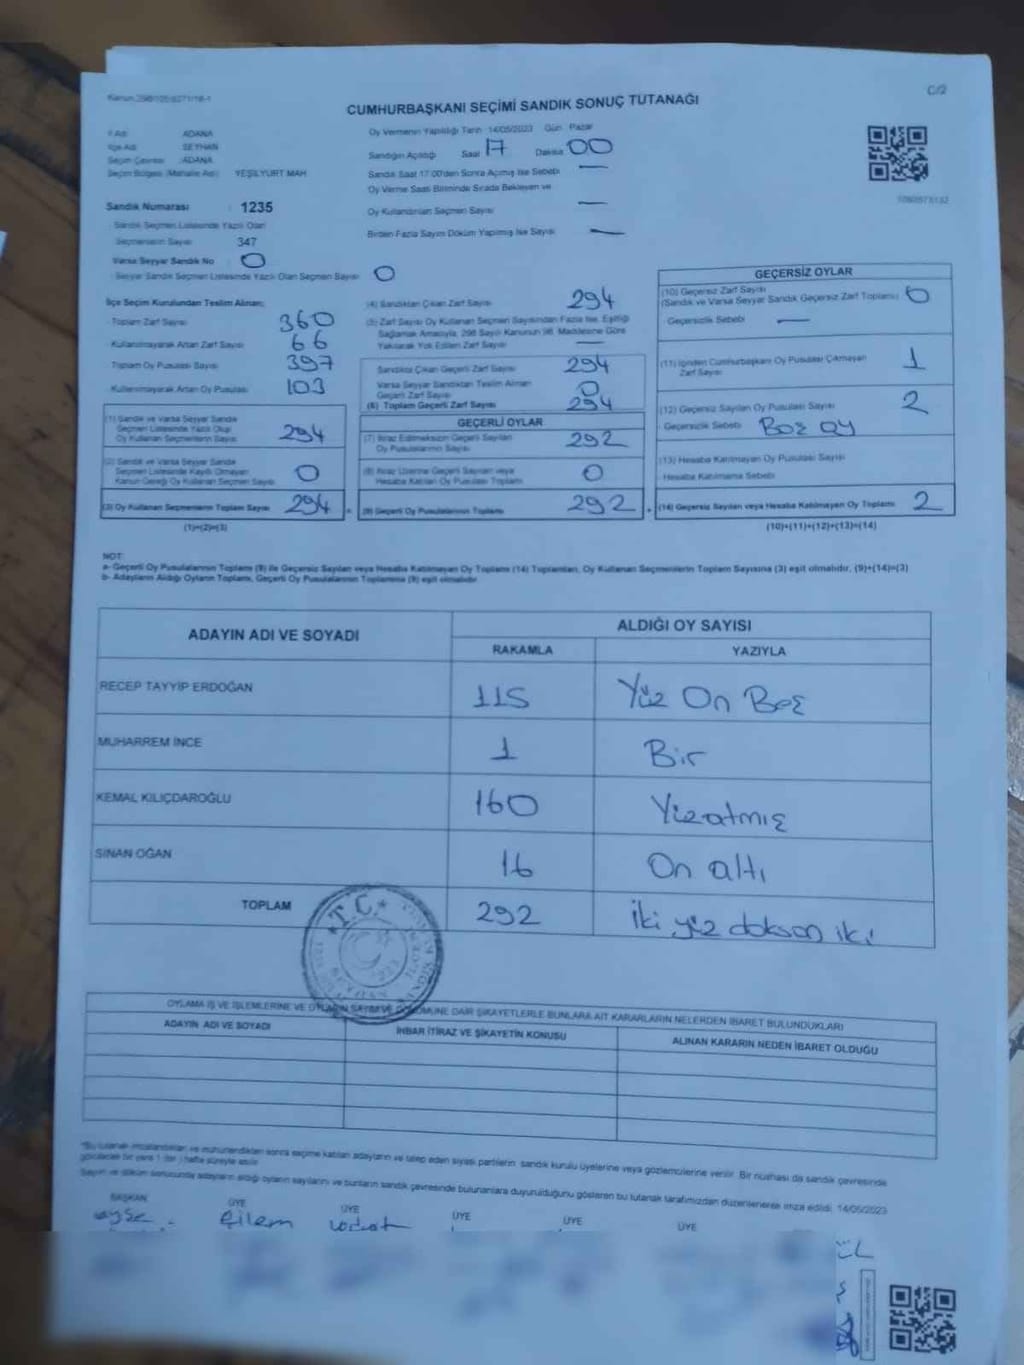 Kanun:298/105;6271/18-1
C/2
CUMHURBAŞKANI SEÇİMİ SANDIK SONUÇ TUTANAĞI
İl Adı ADANA
İlçe Adı SEYHAN
Seçim Çevresi :ADANA
Seçim Bölgesi (Mahalle Adı) YEŞİLYURT MAH
Sandık Numarası : 1235
Sandık Seçmen Listesinde Yazılı Olan
Seçmenlerin Sayısı 347
Varsa Seyyar Sandık No 0
Seyyar Sandık Seçmen Listesinde Yazılı Olan Seçmen Sayısı 0
Oy Vermenin Yapıldığı Tarih :14/05/2023 Gün Pazar
Sandığın Açıldığı Saat 17 Dakika 00
Sandık Saat 17:00'den Sonra Açılmış İse Sebebi —
Oy Verme Saati Bitiminde Sırada Bekleyen ve
Oy Kullandırılan Seçmen Sayısı —
Birden Fazla Sayım Döküm Yapılmış İse Sayısı —
İlçe Seçim Kurulundan Teslim Alınan:
Toplam Zarf Sayısı 360
Kullanılmayarak Artan Zarf Sayısı 66
Toplam Oy Pusulası Sayısı 397
Kullanılmayarak Artan Oy Pusulası 103
(1) Sandık ve Varsa Seyyar Sandık
Seçmen Listesinde Yazılı Olup
Oy Kullanan Seçmenlerin Sayısı 294
(2) Sandık ve Varsa Seyyar Sandık
Seçmen Listesinde Kayıtlı Olmayan
Kanun Gereği Oy Kullanan Seçmen Sayısı 0
(3) Oy Kullanan Seçmenlerin Toplam Sayısı 294
(1)+(2)=(3)
(4) Sandıktan Çıkan Zarf Sayısı 294
(5) Zarf Sayısı Oy Kullanan Seçmen Sayısından Fazla İse, Eşitliği
Sağlamak Amacıyla, 298 Sayılı Kanunun 98. Maddesine Göre
Yakılarak Yok Edilen Zarf Sayısı —
Sandıktan Çıkan Geçerli Zarf Sayısı 294
Varsa Seyyar Sandıktan Teslim Alınan
Geçerli Zarf Sayısı 0
(6) Toplam Geçerli Zarf Sayısı 294
GEÇERLİ OYLAR
(7) İtiraz Edilmeksizin Geçerli Sayılan
Oy Pusulalarının Sayısı 292
(8) İtiraz Üzerine Geçerli Sayılan veya
Hesaba Katılan Oy Pusulası Toplamı 0
(9) Geçerli Oy Pusulalarının Toplamı 292
GEÇERSİZ OYLAR
(10) Geçersiz Zarf Sayısı
(Sandık ve Varsa Seyyar Sandık Geçersiz Zarf Toplamı) 0
Geçersizlik Sebebi —
(11) İçinden Cumhurbaşkanı Oy Pusulası Çıkmayan
Zarf Sayısı 1
(12) Geçersiz Sayılan Oy Pusulası Sayısı 2
Geçersizlik Sebebi Boş oy
(13) Hesaba Katılmayan Oy Pusulası Sayısı
Hesaba Katılmama Sebebi
(14) Geçersiz Sayılan veya Hesaba Katılmayan Oy Toplamı 2
(10)+(11)+(12)+(13)=(14)
NOT:
a- Geçerli Oy Pusulalarının Toplamı (9) ile Geçersiz Sayılan veya Hesaba Katılmayan Oy Toplamı (14) Toplamları, Oy Kullanan Seçmenlerin Toplam Sayısına (3) eşit olmalıdır, (9)+(14)=(3)
b- Adayların Aldığı Oyların Toplamı, Geçerli Oy Pusulalarının Toplamına (9) eşit olmalıdır.
ADAYIN ADI VE SOYADI
ALDIĞI OY SAYISI
RAKAMLA YAZIYLA
RECEP TAYYİP ERDOĞAN 115 Yüz On Beş
MUHARREM İNCE 1 Bir
KEMAL KILIÇDAROĞLU 160 Yüzatmış
SİNAN OĞAN 16 On altı
TOPLAM 292 İki yüz doksan iki
T.C.
OYLAMA İŞ VE İŞLEMLERİNE VE OYLARIN SAYIM VE DÖKÜMÜNE DAİR ŞİKAYETLERLE BUNLARA AİT KARARLARIN NELERDEN İBARET BULUNDUKLARI
ADAYIN ADI VE SOYADI İHBAR İTİRAZ VE ŞİKAYETİN KONUSU ALINAN KARARIN NEDEN İBARET OLDUĞU
*Bu tutanak imzalandıktan ve mühürlendikten sonra seçime katılan adayların ve talep eden siyasi partilerin sandık kurulu üyelerine veya gözlemcilerine verilir. Bir nüshası da sandık çevresinde
görülecek bir yere 1 (bir) hafta süreyle asılır.
Sayım ve döküm sonucunda adayların aldığı oyların sayılarını ve bunların sandık çevresinde bulunanlara duyurulduğunu gösteren bu tutanak tarafımızdan düzenlenerek imza edildi. 14/05/2023
BAŞKAN ÜYE ÜYE ÜYE ÜYE ÜYE
ayşe